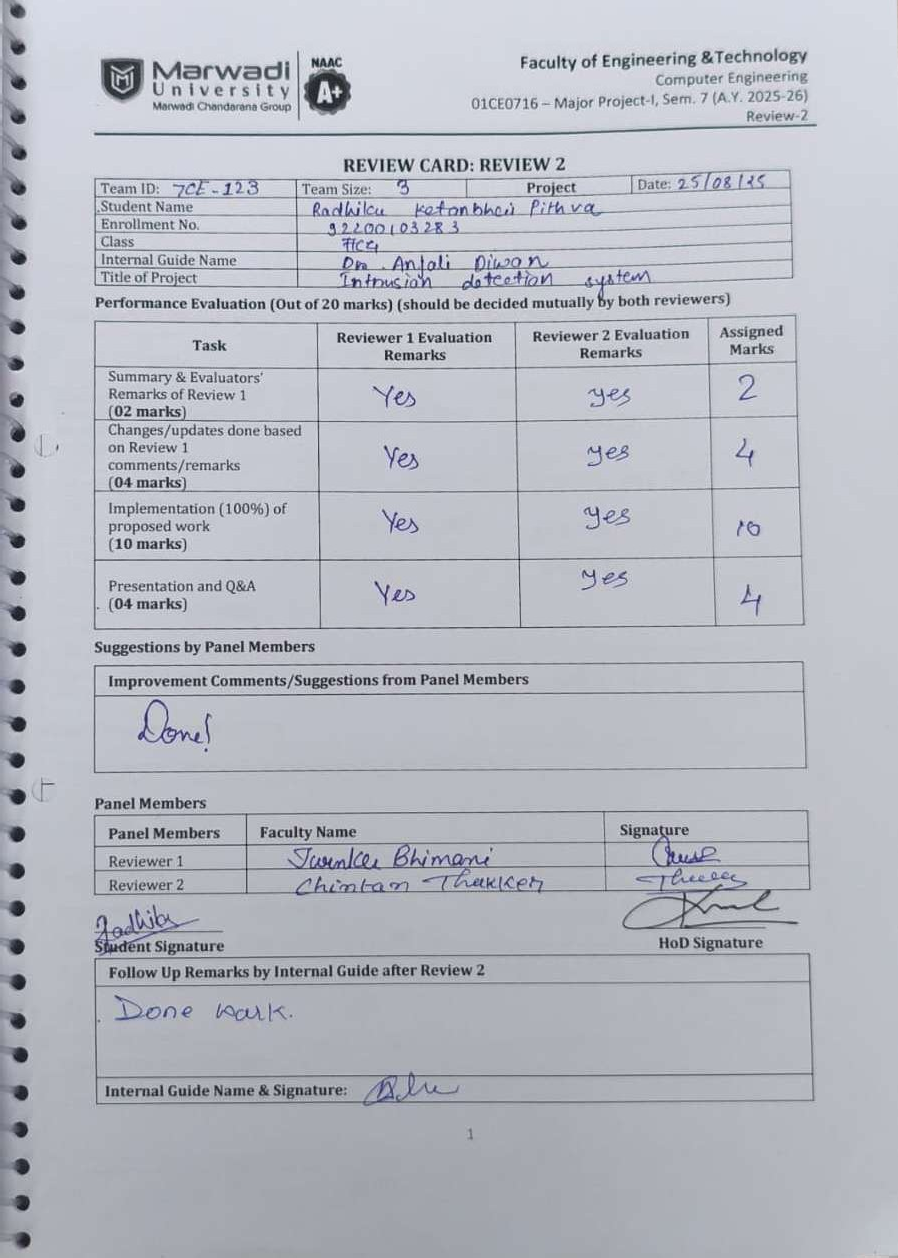 Marwadi
University
Marwadi Chandarana Group
NAAC
A+
Faculty of Engineering &Technology
Computer Engineering
01CE0716 – Major Project-I, Sem. 7 (A.Y. 2025-26)
Review-2
REVIEW CARD: REVIEW 2
Team ID: 7CE-123 Team Size: 3 Project Date: 25/08/25
Student Name Radhika Ketanbhai Pithva
Enrollment No. 92200103283
Class
Internal Guide Name Dr. Anjali Diwan
Title of Project Intrusion detection system
Performance Evaluation (Out of 20 marks) (should be decided mutually by both reviewers)
Task Reviewer 1 Evaluation Remarks Reviewer 2 Evaluation Remarks Assigned Marks
Summary & Evaluators'
Remarks of Review 1
(02 marks) Yes yes 2
Changes/updates done based
on Review 1
comments/remarks
(04 marks) Yes yes 4
Implementation (100%) of
proposed work
(10 marks) Yes yes 10
Presentation and Q&A
(04 marks) Yes yes 4
Suggestions by Panel Members
Improvement Comments/Suggestions from Panel Members
Done!
Panel Members
Panel Members Faculty Name Signature
Reviewer 1 Bhimani
Reviewer 2 Chintan Thakker
Radhika
Student Signature HoD Signature
Follow Up Remarks by Internal Guide after Review 2
Done work.
Internal Guide Name & Signature:
1